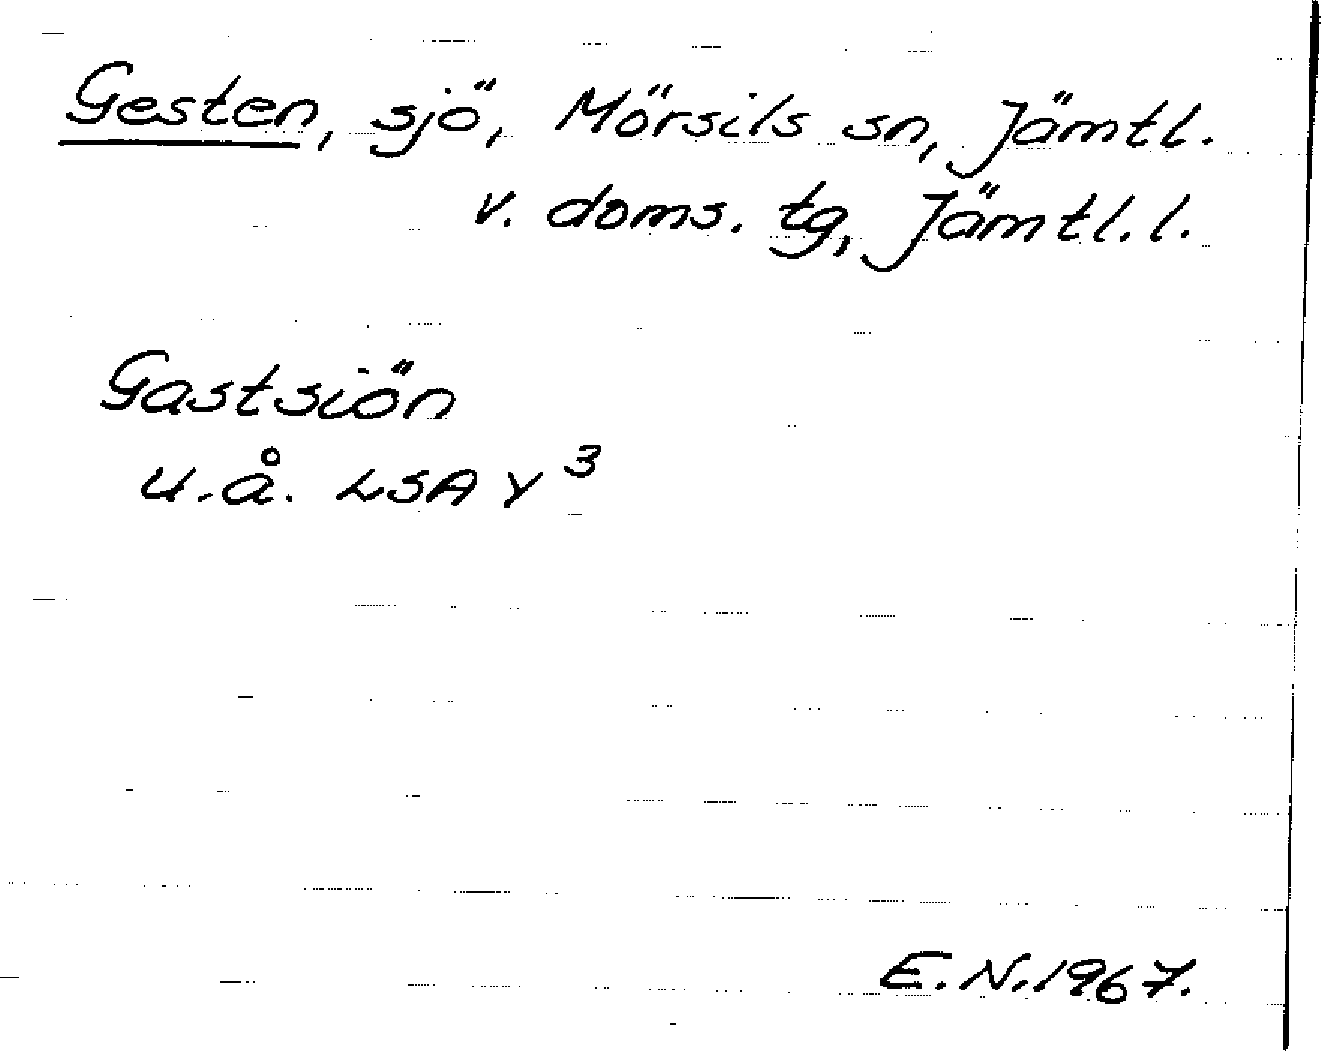 Gesten, sjö, Mörsils sn, Jämtl.
v. doms. tg, Jämtl. l.
Gastsiön
u.å. LSA Y 3
E.N. 1967.